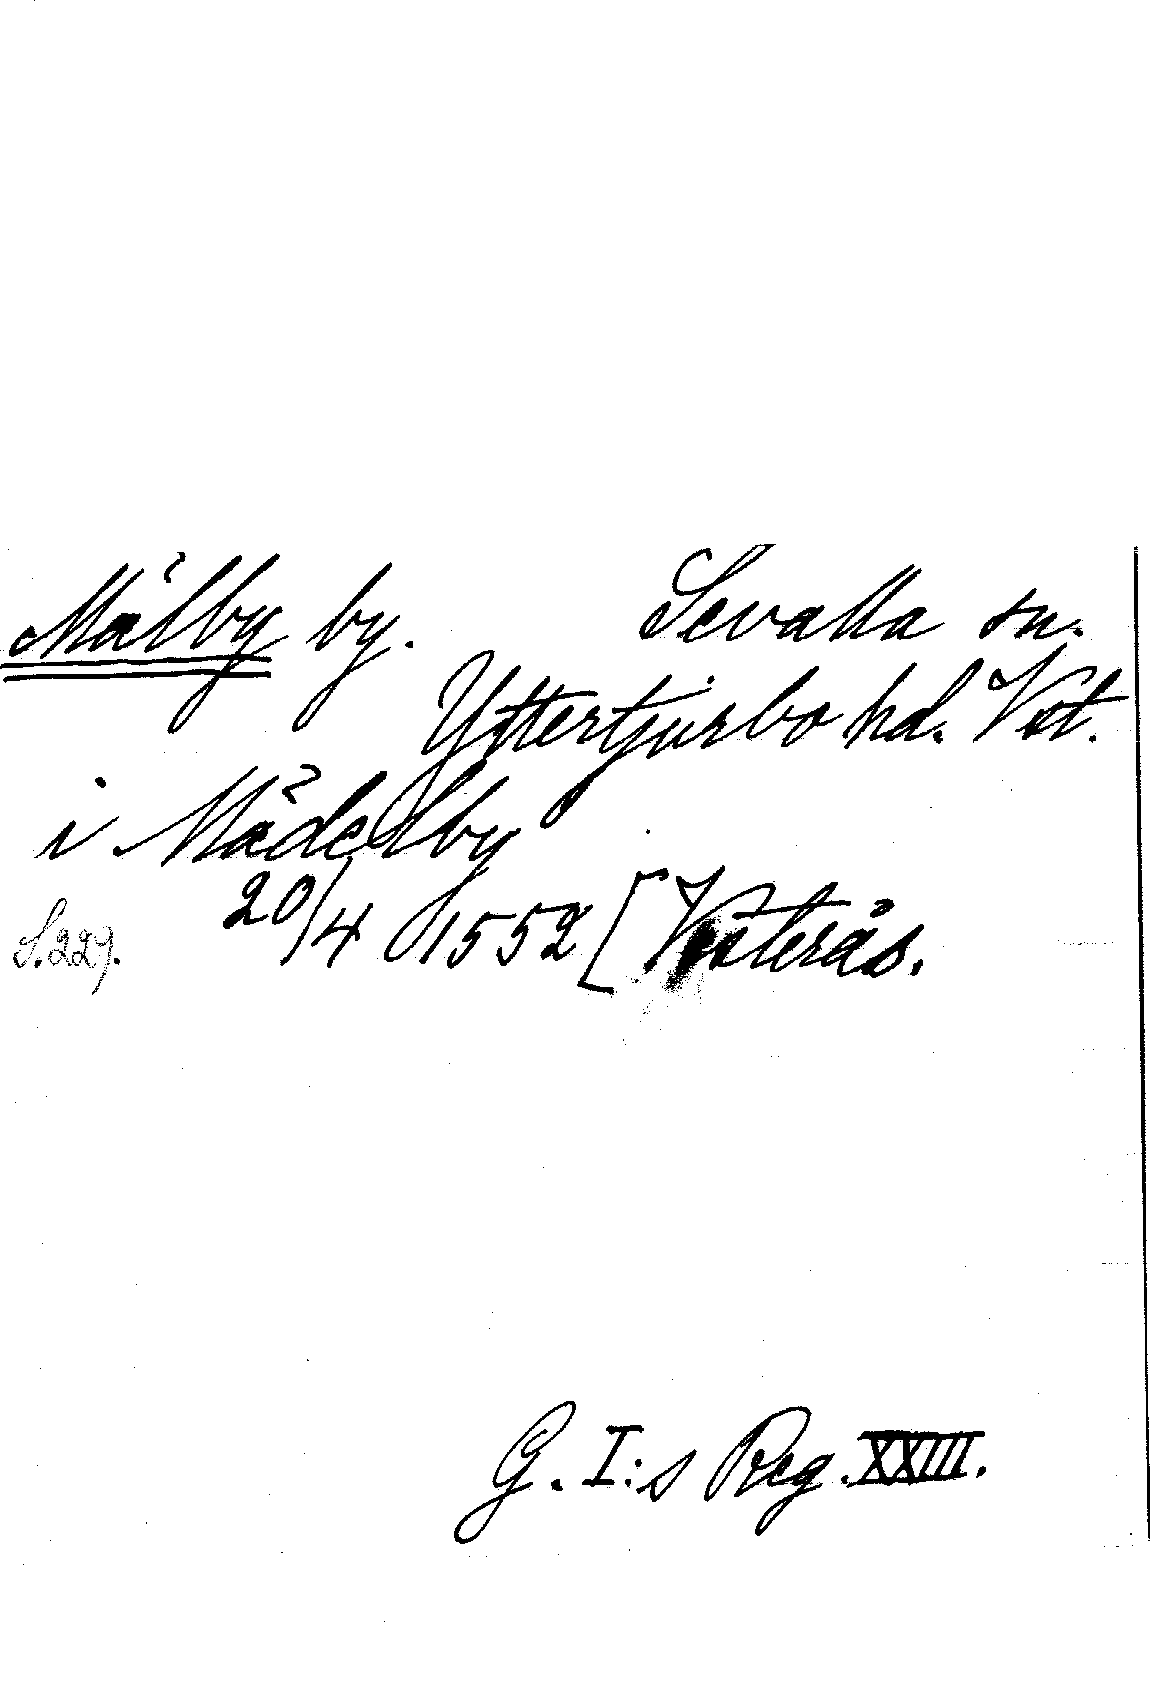 Målby by. Sevalla sn.
Yttertjurbo hd. Vst.
i Mädelby
S. 229. 20/4 1552 [Västerås.
G. I:s Reg. XXIII.